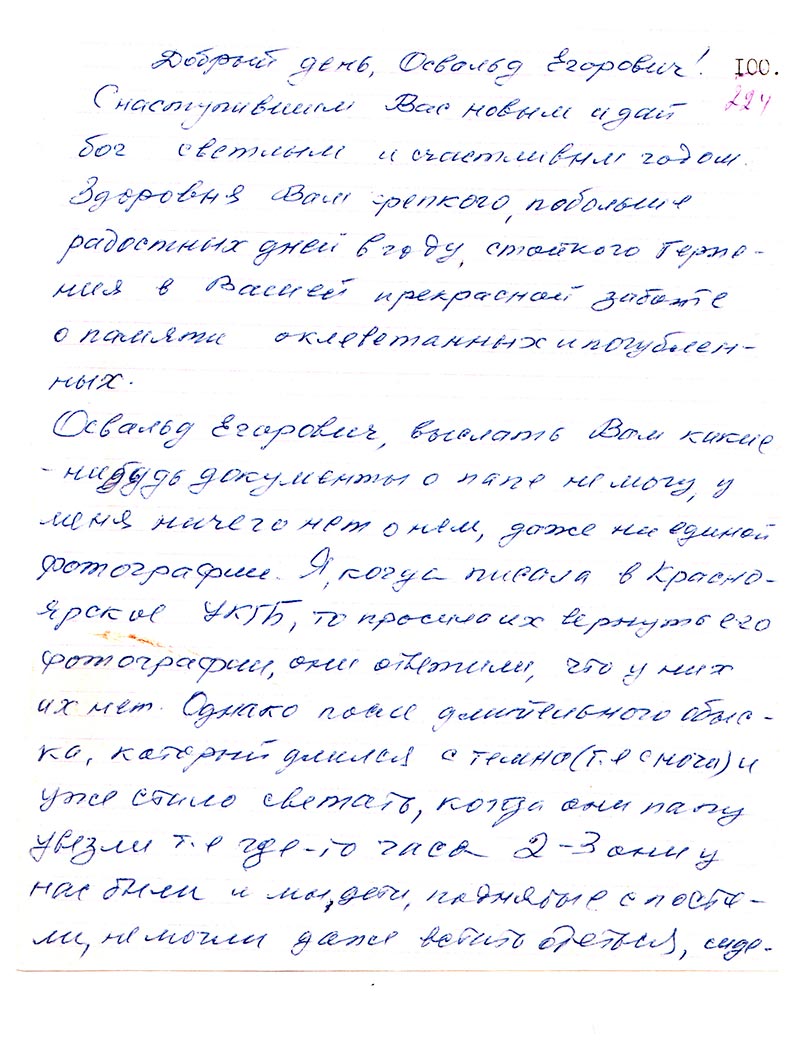 Добрый день, Освальд Егорович! 100.
С наступившим Вас новым и дай 224
бог светлым и счастливым годом.
Здоровья Вам крепкого, побольше
радостных дней в году, стойкого терпе-
ния в Вашей прекрасной заботе
о памяти оклеветанных и погублен-
ных.
Освальд Егорович, выслать Вам какие
-нибудь документы о папе не могу, у
меня ничего нет о нем, даже ни единой
фотографии. Я, когда писала в Красно-
ярское УКГБ, то просила их вернуть его
фотографии, они ответили, что у них
их нет. Однако после длительного обыс-
ка, который длился с темно (т.е с ночи) и
уже стало светать, когда они папу
увезли т.е где-то часа 2-3 они у
нас были и мы, дети, поднятые с посте-
ли, не могли даже встать одеться, сиде-